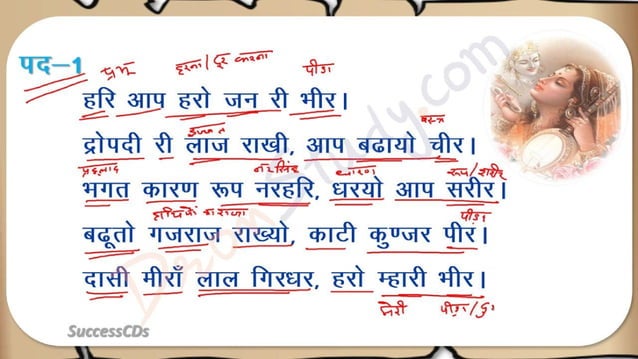 पद-1
प्रभु हरना/दूर करना पीडा
हरि आप हरो जन री भीर।
इज्जत वस्त्र
द्रोपदी री लाज राखी, आप बढायो चीर।
प्रहलाद नरसिंह धारण रूप/शरीर
भगत कारण रूप नरहरि, धरयो आप सरीर।
हाथियों का राजा पीड़ा
बढ़ूतो गजराज राख्यो, काटी कुण्जर पीर।
दासी मीराँ लाल गिरधर, हरो म्हारी भीर।
मेरी पीड़ा/
SuccessCDs
DronStudy.com